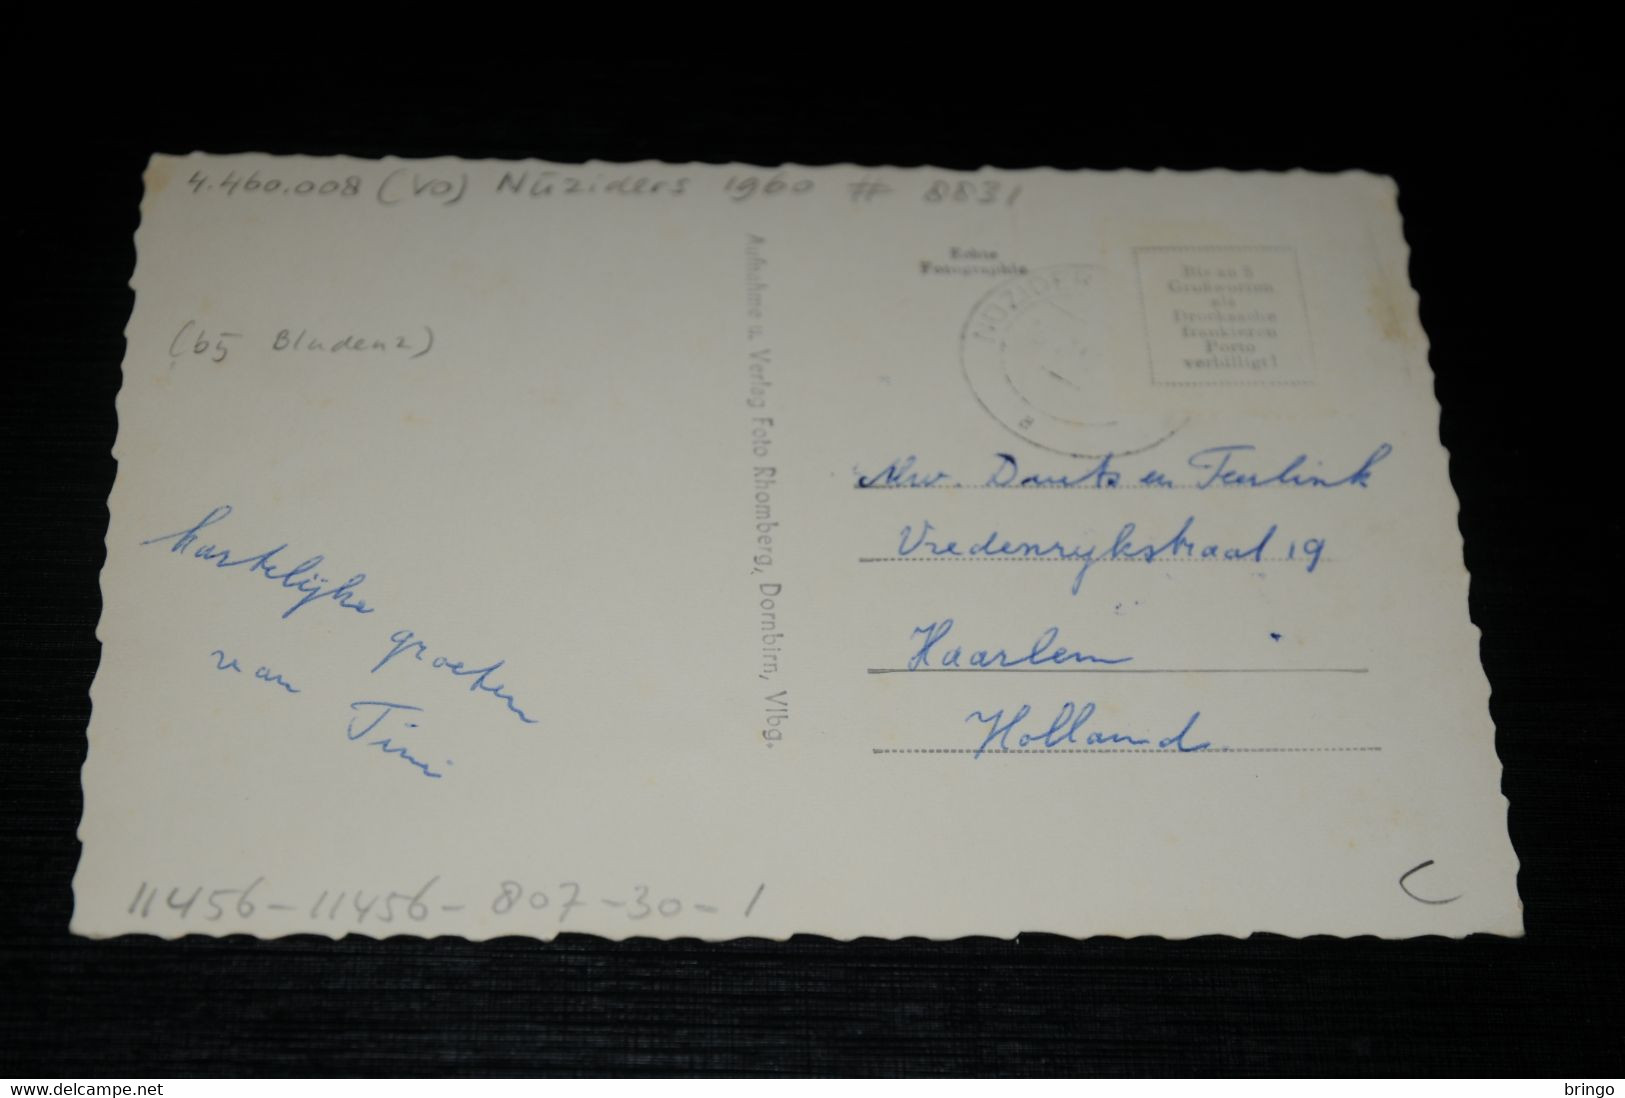 4.460.008 (VO) Nüziders 1960 # 8831
(bij Bludenz)
Echte
Fotographie
Bis zu 5
Grußworten
als
Drucksache
frankieren
Porto
verbilligt!
NÜZIDER
a
Aufnahme u. Verlag Foto Rhomberg, Dornbirn, Vlbg.
Mw. en
Vredenrijkstraat 19
Haarlem
Holland
hartelijke groeten
van Tini
11456-11456-807-30-1
www.delcampe.net
bringo